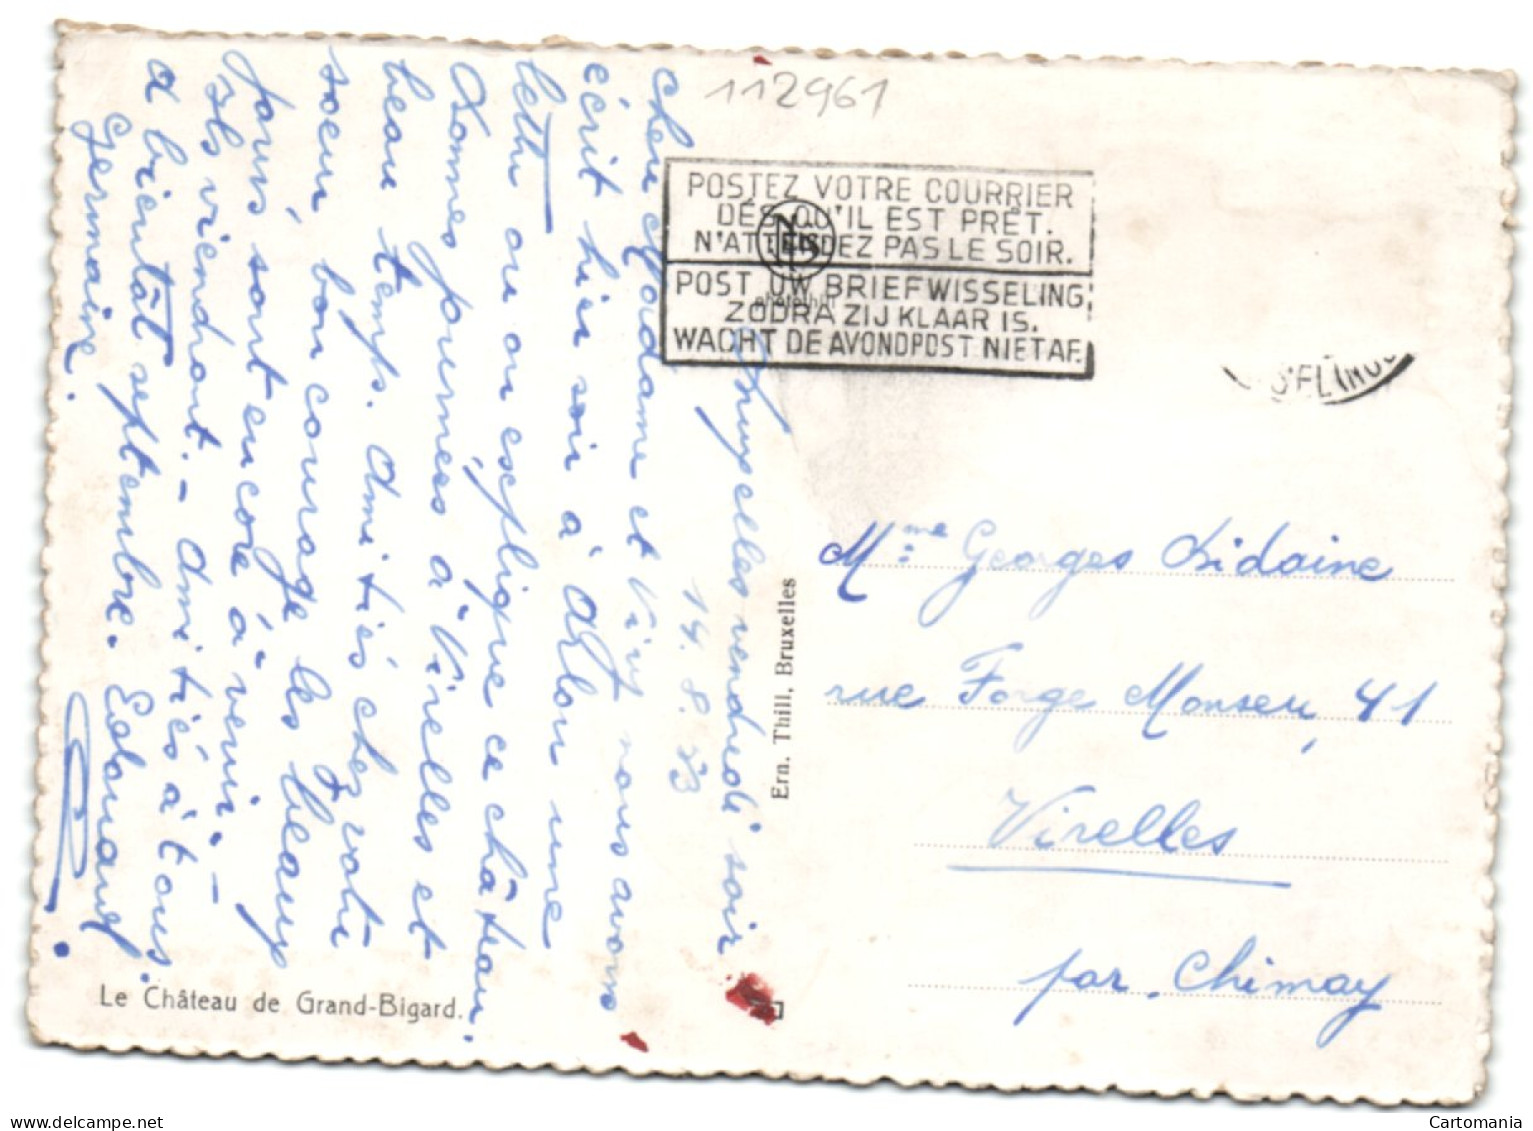 112961
POSTEZ VOTRE COURRIER
DÈS QU'IL EST PRÊT.
N'ATTENDEZ PAS LE SOIR.
POST UW BRIEFWISSELING
ZODRA ZIJ KLAAR IS.
WACHT DE AVONDPOST NIET AF.
photothill
Bruxelles vendredi soir
14.8.53
Chère Madame et Vivy nous avons
écrit hier soir à Arlon une
lettre ou on explique ce château.
Bonnes journées à Virelles et
beau temps. Amitiés chez votre
soeur bon courage les beaux
jours sont encore à venir. -
Ils viendront. - Amitiés à tous.
à bientôt septembre. Edouard
Germaine.
Ern. Thill, Bruxelles
Mme Georges Lidaine
rue Forge Monseu, 41
Virelles
par Chimay
Le Château de Grand-Bigard.
Cartomania
www.delcampe.net